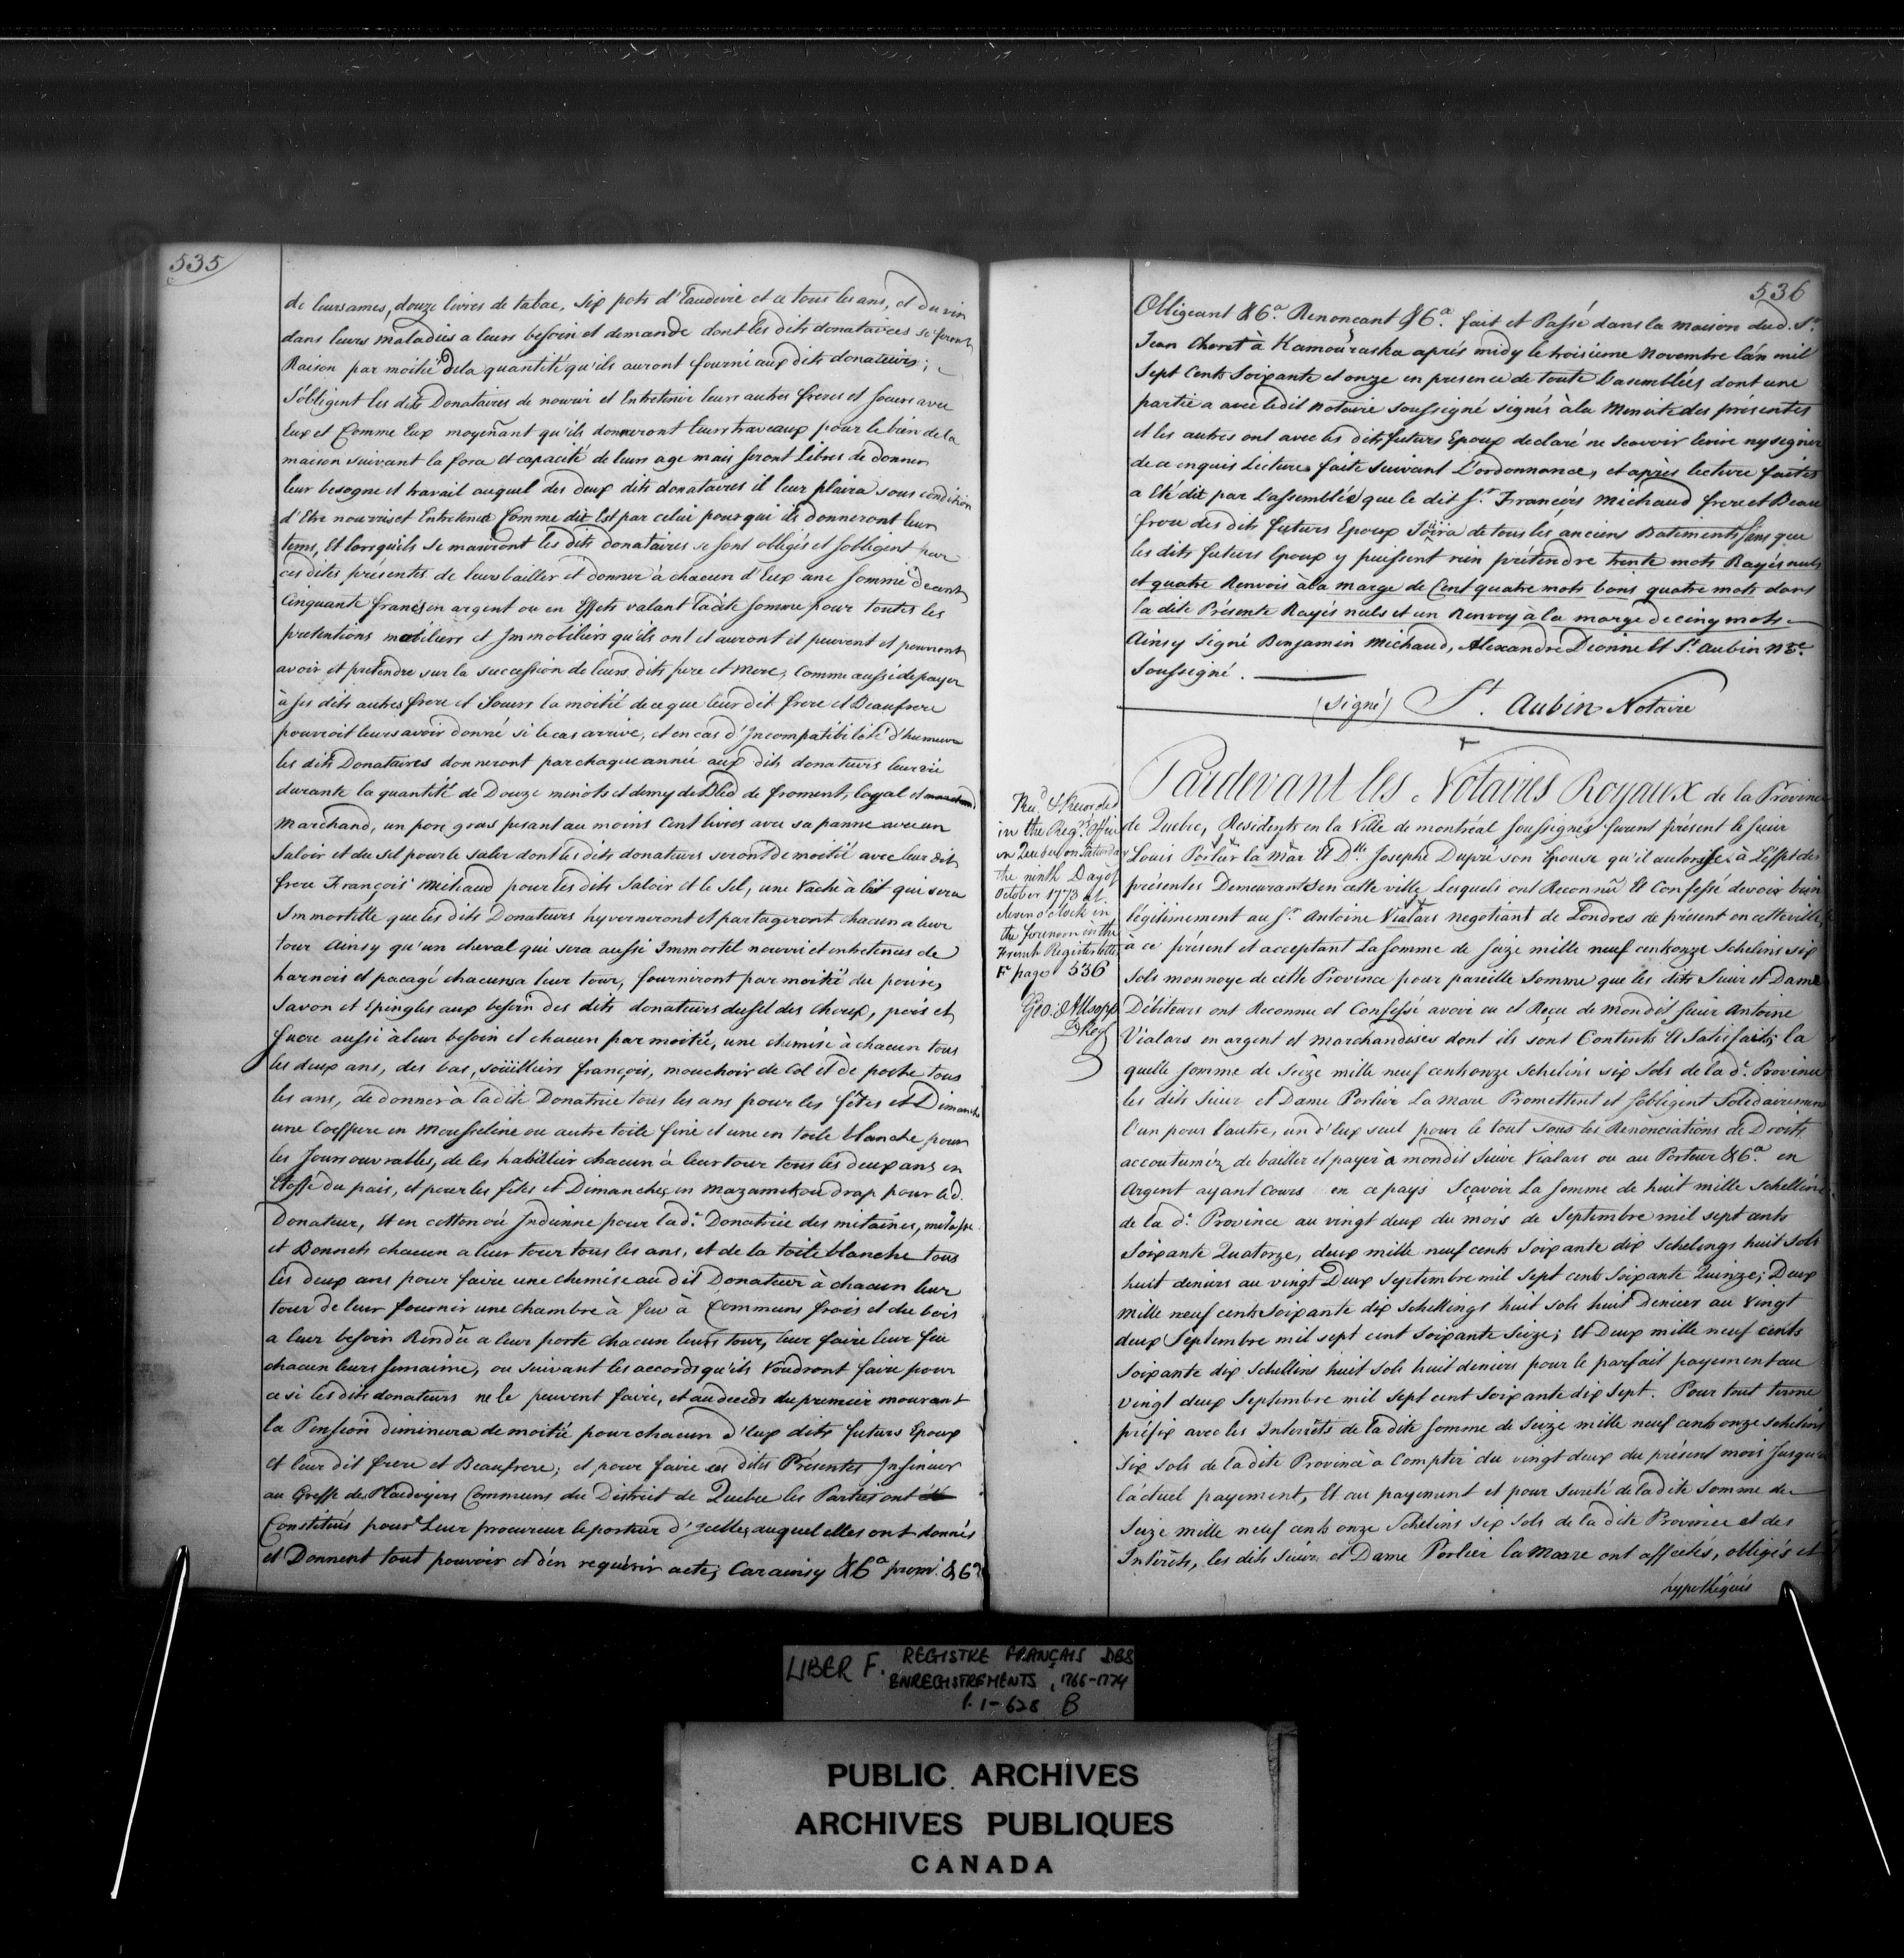 535
de leurs ames, douze livres de tabac, Six pots d'Eaudevie et ce tous les ans, et du vin
dans leurs maladies a leurs besoin et demande dont les dits donataires se feront
Raison par moitié de la quantité qu'ils auront fourni aux dits donateurs;
S'obligent les dits Donataires de nourir et Entretenir leurs autres freres et soeurs avec
Eux et Comme Eux moyeñant qu'ils donneront leurs traveaux pour le bien de la
maison suivant la force et capacité de leurs age mais seront Libres de donner
leur besogne et travail auquel des deux dits donataires il leur plaira sous condition
d'Etre nourris et Entretenus Comme dit Est par celui pour qui ils donneront leur
tems, Et lorsqu'ils se mariront les dits donataires se sont obligés et s'obligent par
ces dites présentes de leurs bailler et donner à chacun d'Eux une somme de cent
Cinquante francs en argent ou en Effets valant Ladite somme pour toutes les
pretentions mobiliers et Immobiliers qu'ils ont et auront et peuvent et pouront
avoir et pretendre sur la succession de leurs dits pere et mere, Comme aussi de payer
à ses dits autres frere et Soeurs la moitié de ce que leur dit frere et Beaufrere
pourroit leurs avoir donné si le cas arrive, et en cas d'Incompatibilité d'humeur
les dits Donataires donneront par chaque année aux dits donateurs leur vie
durante la quantité de Douze minots et demy de Bled de froment, loyal et
marchand, un porc gras pesant au moins Cent livres avec sa panne avec un
Saloir et du Sel pour le saler dont les dits donateurs seront de moitié avec leur dit
frere François Michaud pour les dits Saloir et le Sel, une Vache à lait qui sera
Immortelle que les dits Donateurs hyverneront et partageront chacun a leur
tour Ainsy qu'un cheval qui sera aussi Immortel nourri et entretenus de
harnois et pacagé chacun sa leur tour, fourniront par moitié du poivre,
Savon et Epingles aux besoin des dits donateurs du sel des choux, pois et
Sucre aussi à leur besoin et chacun par moitié, une chemise à chacun tous
les deux ans, des bas, soüilliers françois, mouchoir de Col et de poche tous
les ans, de donner à la dite Donatrice tous les ans pour les fêtes et Dimanche
une Coeffure en Mousseline ou autre toile fine et une en toile blanche pour
les Jours ouvrables, de les habillier chacun à leur tour tous les deux ans en
Etoffe du pais, et pour les fêtes et Dimanches en Mazamet ou drap pour led.
Donateur, Et en cotton où Indienne pour lad.e Donatrice des mitaines,
et Bonnets chacun a leur tour tous les ans, et de la toile blanche tous
les deux ans pour faire une chemise au dit Donateur à chacun leur
tour de leur fournir une chambre à feu à Communs frais et du bois
a leur besoin Rendu a leur porte chacun leurs tour, leur faire leur feu
chacun leurs semaine, ou suivant les accords qu'ils voudront faire pour
ce si les dits donateurs ne le peuvent faire, et au deceds du premier mourant
la Pension diminura de moitié pour chacun d'eux dits futurs Epoux
et leur dit frere et Beaufrere; et pour faire ces dites Présentes Insinuer
au Greffe des Plaidoyers Communs du District de Quebec les Parties ont
Constitués pour Leur procureur le porteur d'Icelles auquel elles ont donnés
et Donnent tout pouvoir et d'en requérir acte; Car ainsy &c.a prom.t &c.a
536
Obligeant &c.a Renonçant &c.a fait et Passé dans la maison dud. S.r
Jean Choret à Kamouraska aprés midy le troisieme Novembre l'án mil
Sept Cents Soixante et onze en presence de toute L'asemblées dont une
partie a avec ledit Notaire soussigné signés à la Minute des présentes
et les autres ont avec les dits futurs Epoux declaré ne Scavoir Ecrire ny signer
de ce enquis Lecture faite suivant L'ordonnance, et après lecture faites
a Eté dit par L'assemblée que le dit S.r François Michaud frere et Beau
frere des dits futurs Epoux Joüira de tous les anciens Batiments sans que
les dits futurs Epoux y puissent rien prétendre trente mots Rayés nuls
et quatre Renvois à la marge de Cent quatre mots bons quatre mots dans
la dite Présente Rayés nuls et un Renvoy à la marge de cinq mots
Ainsy signé Benjamin Michaud, Alexandre Dionne et S.t Aubin N.re
Soussigné.
(signé) S.t Aubin Notaire
Pardevant les Notaires Royaux de la Province
de Quebec, Residents en la Ville de montréal soussignés furent présent le sieur
Louis Porlier la Mar Et D.lle Josephe Dupré son Epouse qu'il autorise à L'effet des
présentes Demeurants en cette ville Lesquels ont Reconnû Et Confessé devoir bien
légitimement au S.r Antoine Vialars negotiant de Londres de présent en cette ville
à ce présent et acceptant La somme de seize mille neuf cents onze Schelins six
Sols monnoye de cette Province pour pareille Somme que les dits Sieur et Dame
Débiteurs ont Reconnu et Confessé avoir eu et Reçu de mondit sieur Antoine
Vialars en argent et Marchandises dont ils sont Contents Et Satisfaits; la
quelle somme de Seize mille neuf cents onze Schelins six Sols de lad.e Province
les dits Sieur et Dame Porlier La Mare Promettent et s'obligent Solidairement
l'un pour l'autre, un d'Eux seul pour le tout sous les Renonciations de Droits
accoutuméz de bailler et payer à mondit Sieur Vialars ou au Porteur &c.a en
Argent ayant cours en ce pays Sçavoir La somme de huit mille Schellins
de la d.e Province au vingt deux du mois de Septembre mil sept cents
Soixante Quatorze, deux mille neuf cents Soixante dix Schelings huit Sols
huit deniers au vingt Deux Septembre mil Sept cents Soixante Quinze; Deux
Mille neuf cents Soixante dix Schellings huit Sols huit Deniers au Vingt
deux Septembre mil sept cent soixante Seize; Et Deux mille neuf cents
Soixante dix Schellins huit Sols huit deniers pour le parfait payement au
vingt deux Septembre mil sept cent soixante dix sept. Pour tout terme
préfix avec les Interêts de la dite somme de Seize mille neuf cents onze schelins
Six Sols de la dite Province à Compter du vingt deux du présent mois Jusqu'a
l'áctuel payement, Et au payement et pour sureté de la dite somme de
Seize mille neuf cents onze Schelins six sols de la dite Province et des
Intérêts, les dits Sieur et Dame Porlier la Mare ont affectés, obligés et
hypothéqués
Rec.d & Recorded
in the Reg.rs Office
in Quebec on Saturday
the ninth Day of
October 1773 at
eleven o'clock in
the forenoon in the
French Register letter
F page 536
Geo: Allsopp
D Reg
LIBER F. REGISTRE FRANÇAIS DES
ENREGISTREMENTS, 1766-1774
P. 1-628 B
PUBLIC ARCHIVES
ARCHIVES PUBLIQUES
CANADA